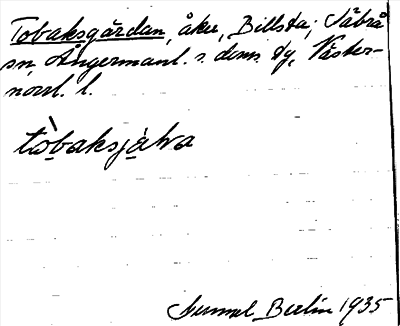 Tobaksgärdan, åker, Billsta, Säbrå
sn, Ångermanl. s. doms. tg, Väster-
norrl. l.
tòbaksjàḷṇa
Berlin 1935